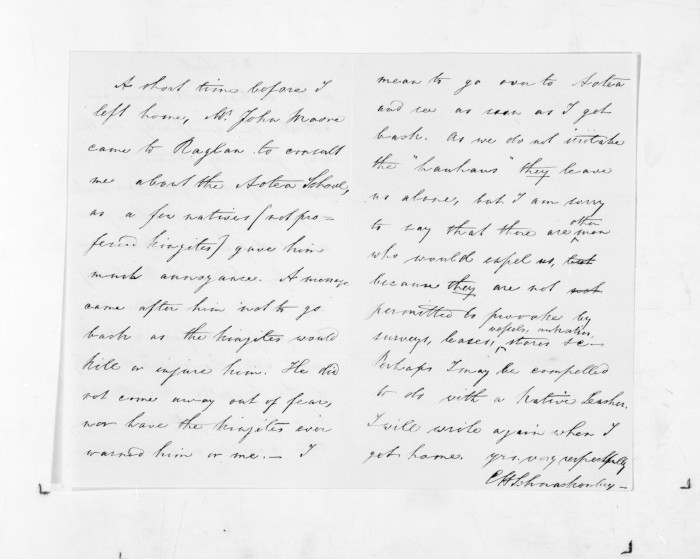 A short time before I
left home, Mr John Moore
came to Raglan to consult
me about the Aotea School,
as a few natives [not pro-
fessed kingites] gave him
much annoyance. A message
came after him not to go
back as the kingites would
kill or injure him. He did
not come away out of fear,
nor have the kingites ever
warned him or me. — I
mean to go over to Aotea
and see as soon as I get
back. As we do not irritate
the "hauhaus" they leave
us alone, but I am sorry
to say that there are other men
who would expel us, but
because they are not not
permitted to provoke by
surveys, leases, vessels, stores &c —
Perhaps I may be compelled
to do with a Native Teacher.
I will write again when I
get home. yrs. very respectfully
C H Schnackenberg —